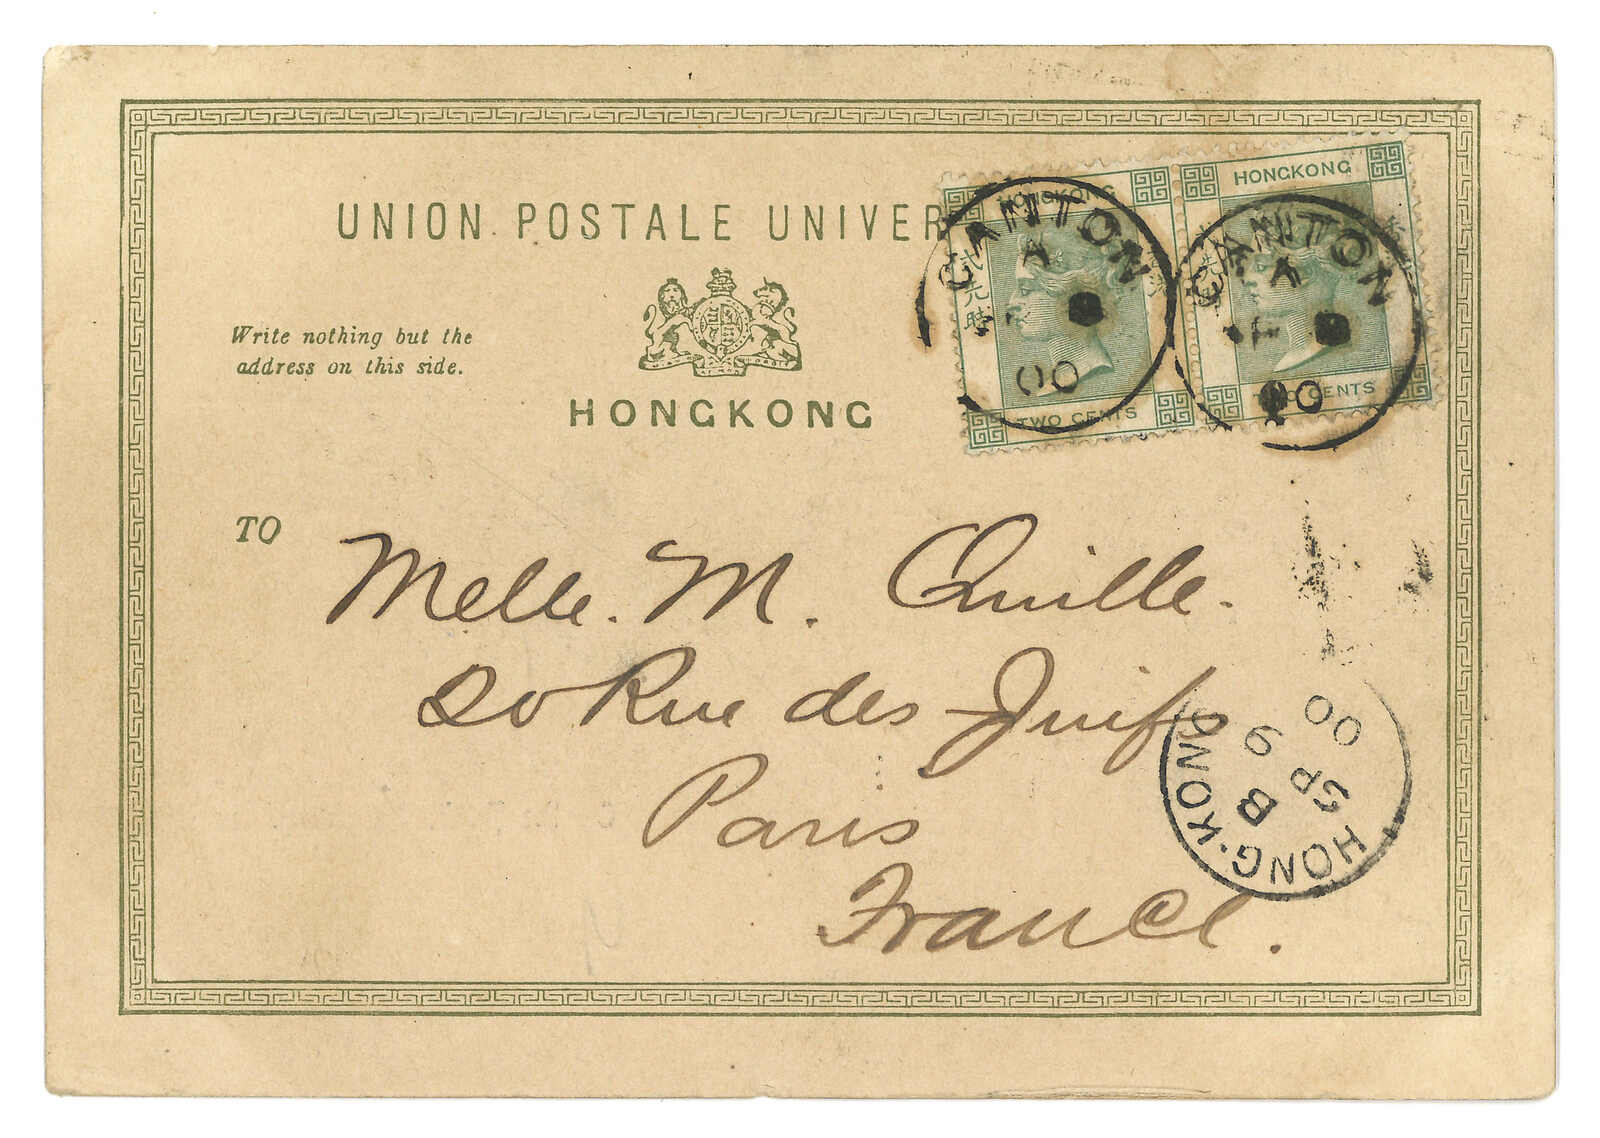 UNION POSTALE UNIVER
Write nothing but the
address on this side.
HONGKONG
HONGKONG
TWO CENTS
CANTON
A
00
HONGKONG
TWO CENTS
CANTON
A
00
TO
Melle. M. Quille.
20 Rue des Juifs
Paris
France.
HONG·KONG
B
9
SP
00